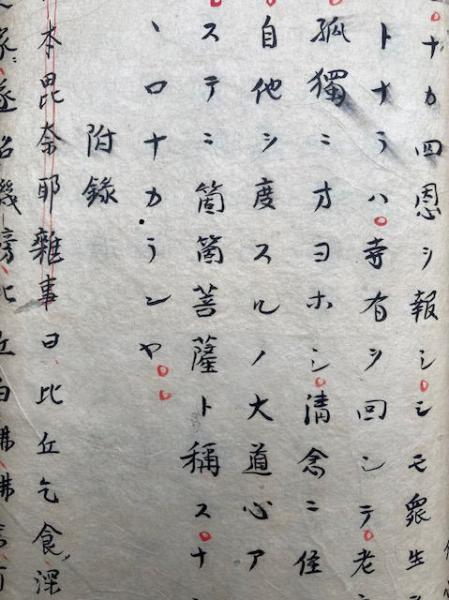 ナカ四恩ヲ報シ。シモ衆生
トナラハ。寺有ヲ回シテ。老
孤獨ニオヨホシ。清念ニ住
自他ヲ度スルノ大道心ア
ステニ箇箇菩薩ト稱ス。ナ
ヽロナカランヤ。
附錄
本毘奈耶雜事曰、比丘乞食、深
家、遂招譏謗、比丘白佛、佛言